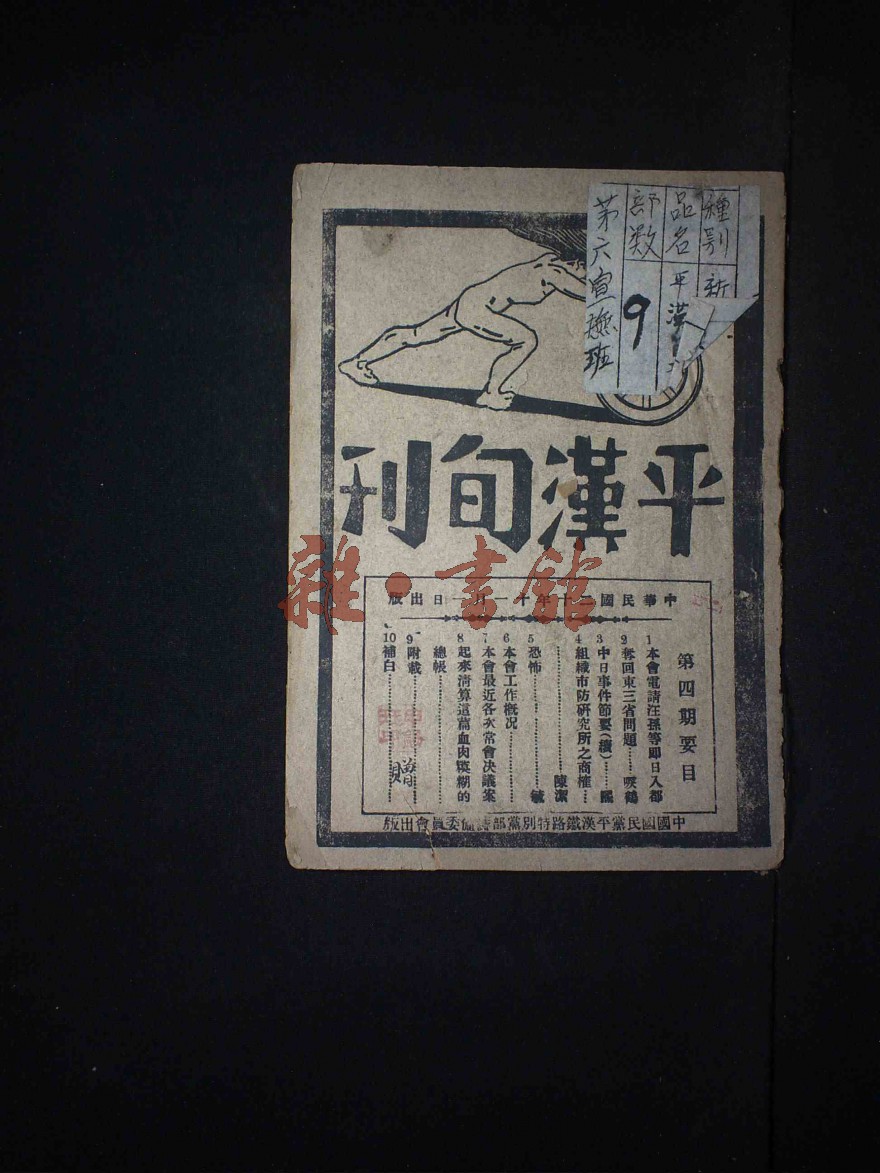 種別 新
品名 平漢
部数 9
第六宣撫班
平漢旬刊
中華民國二十年十一月一日出版
第四期要目
1本會電請汪孫等即日入都
2奪回東三省問題……唳鶴
3中日事件節要(續)……
4組織市防研究所之商榷……
……陳潔
5恐怖……毓
6本會工作概况……
7本會最近各次常會決議案
8起來清算這篇血肉糢糊的
總帳……
9附載……
10補白……
贈
中國國民黨平漢鐵路特別黨部籌備委員會出版
雜·書館